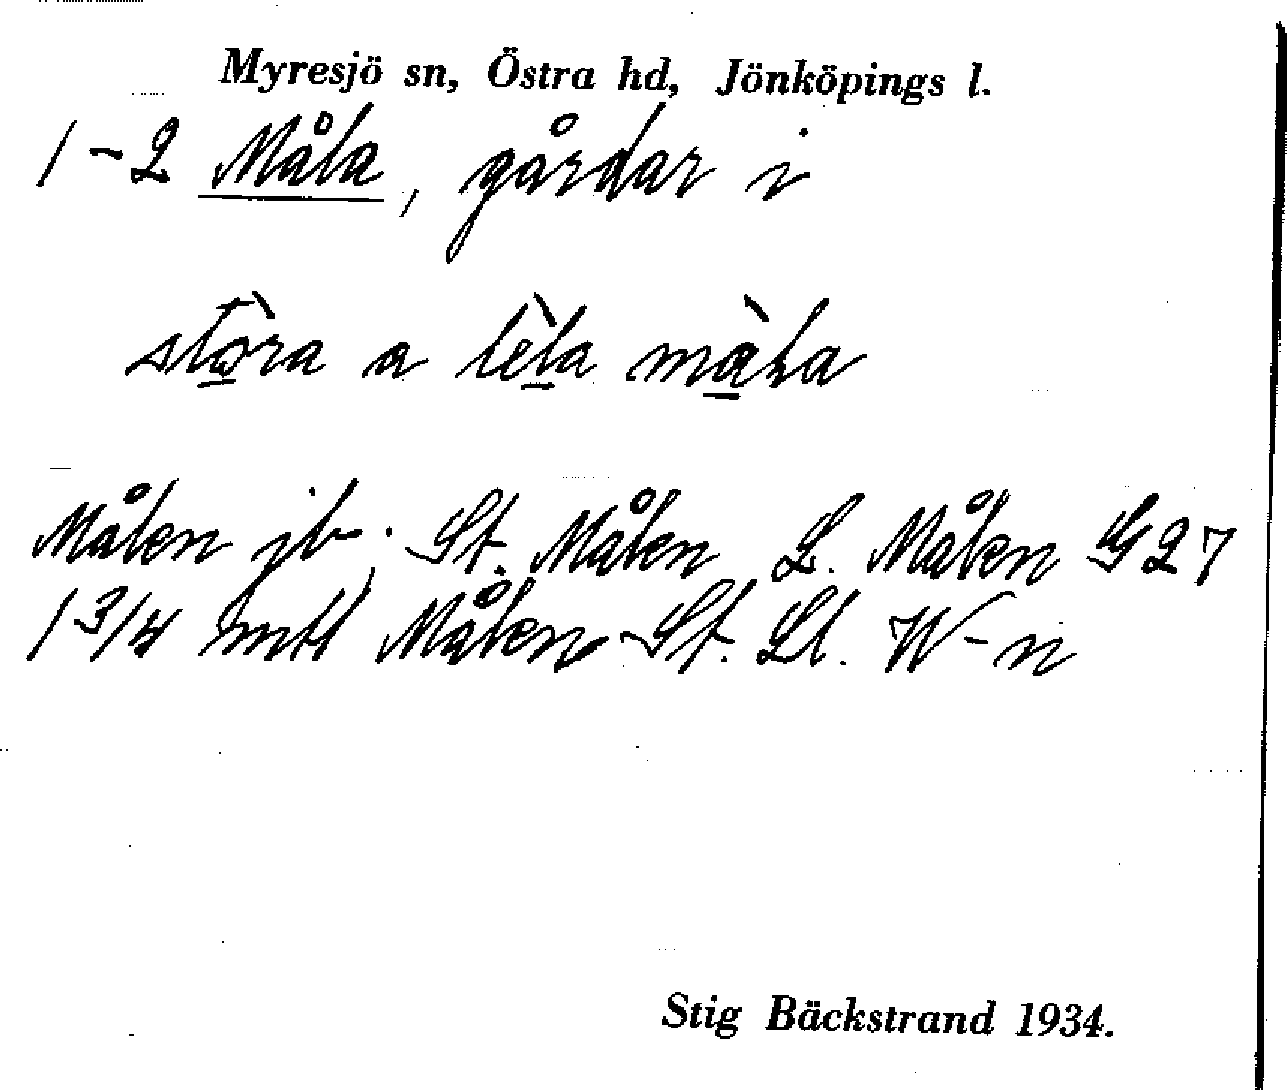 Myresjö sn, Östra hd, Jönköpings l.
1-2 Måla, gårdar i
stòra a lèla màla
Målen jb. St. Målen L. Målen G 27
1 3/4 mtl Målen St. Ll. W-n
Stig Bäckstrand 1934.